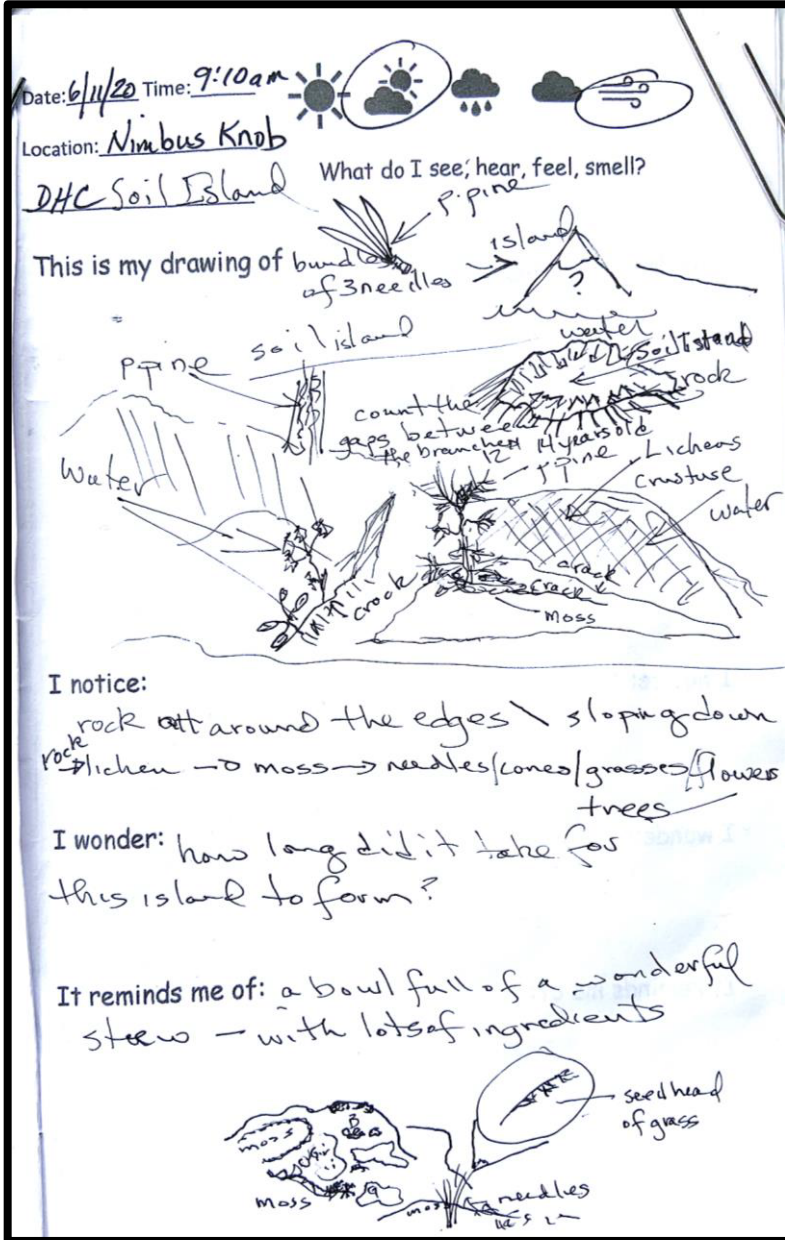 Date: 6/11/20 Time: 9:10am
Location: Nimbus Knob
DHC Soil Island
What do I see, hear, feel, smell?
p.pine
This is my drawing of bundles
of 3 needles
island
?
water
soil island
ppine
Soil Island
rock
count the
gaps between
the branches
12
14 years old
ppine
Lichens
crustuse
water
Water
crack
crack
crack
moss
I notice:
rock all around the edges \ sloping down
rock → lichen → moss → needles/cones/grasses/flowers
trees
I wonder: how long did it take for
this island to form?
It reminds me of: a bowl full of a wonderful
stew - with lots of ingredients
seed head
of grass
moss
moss
moss
needles